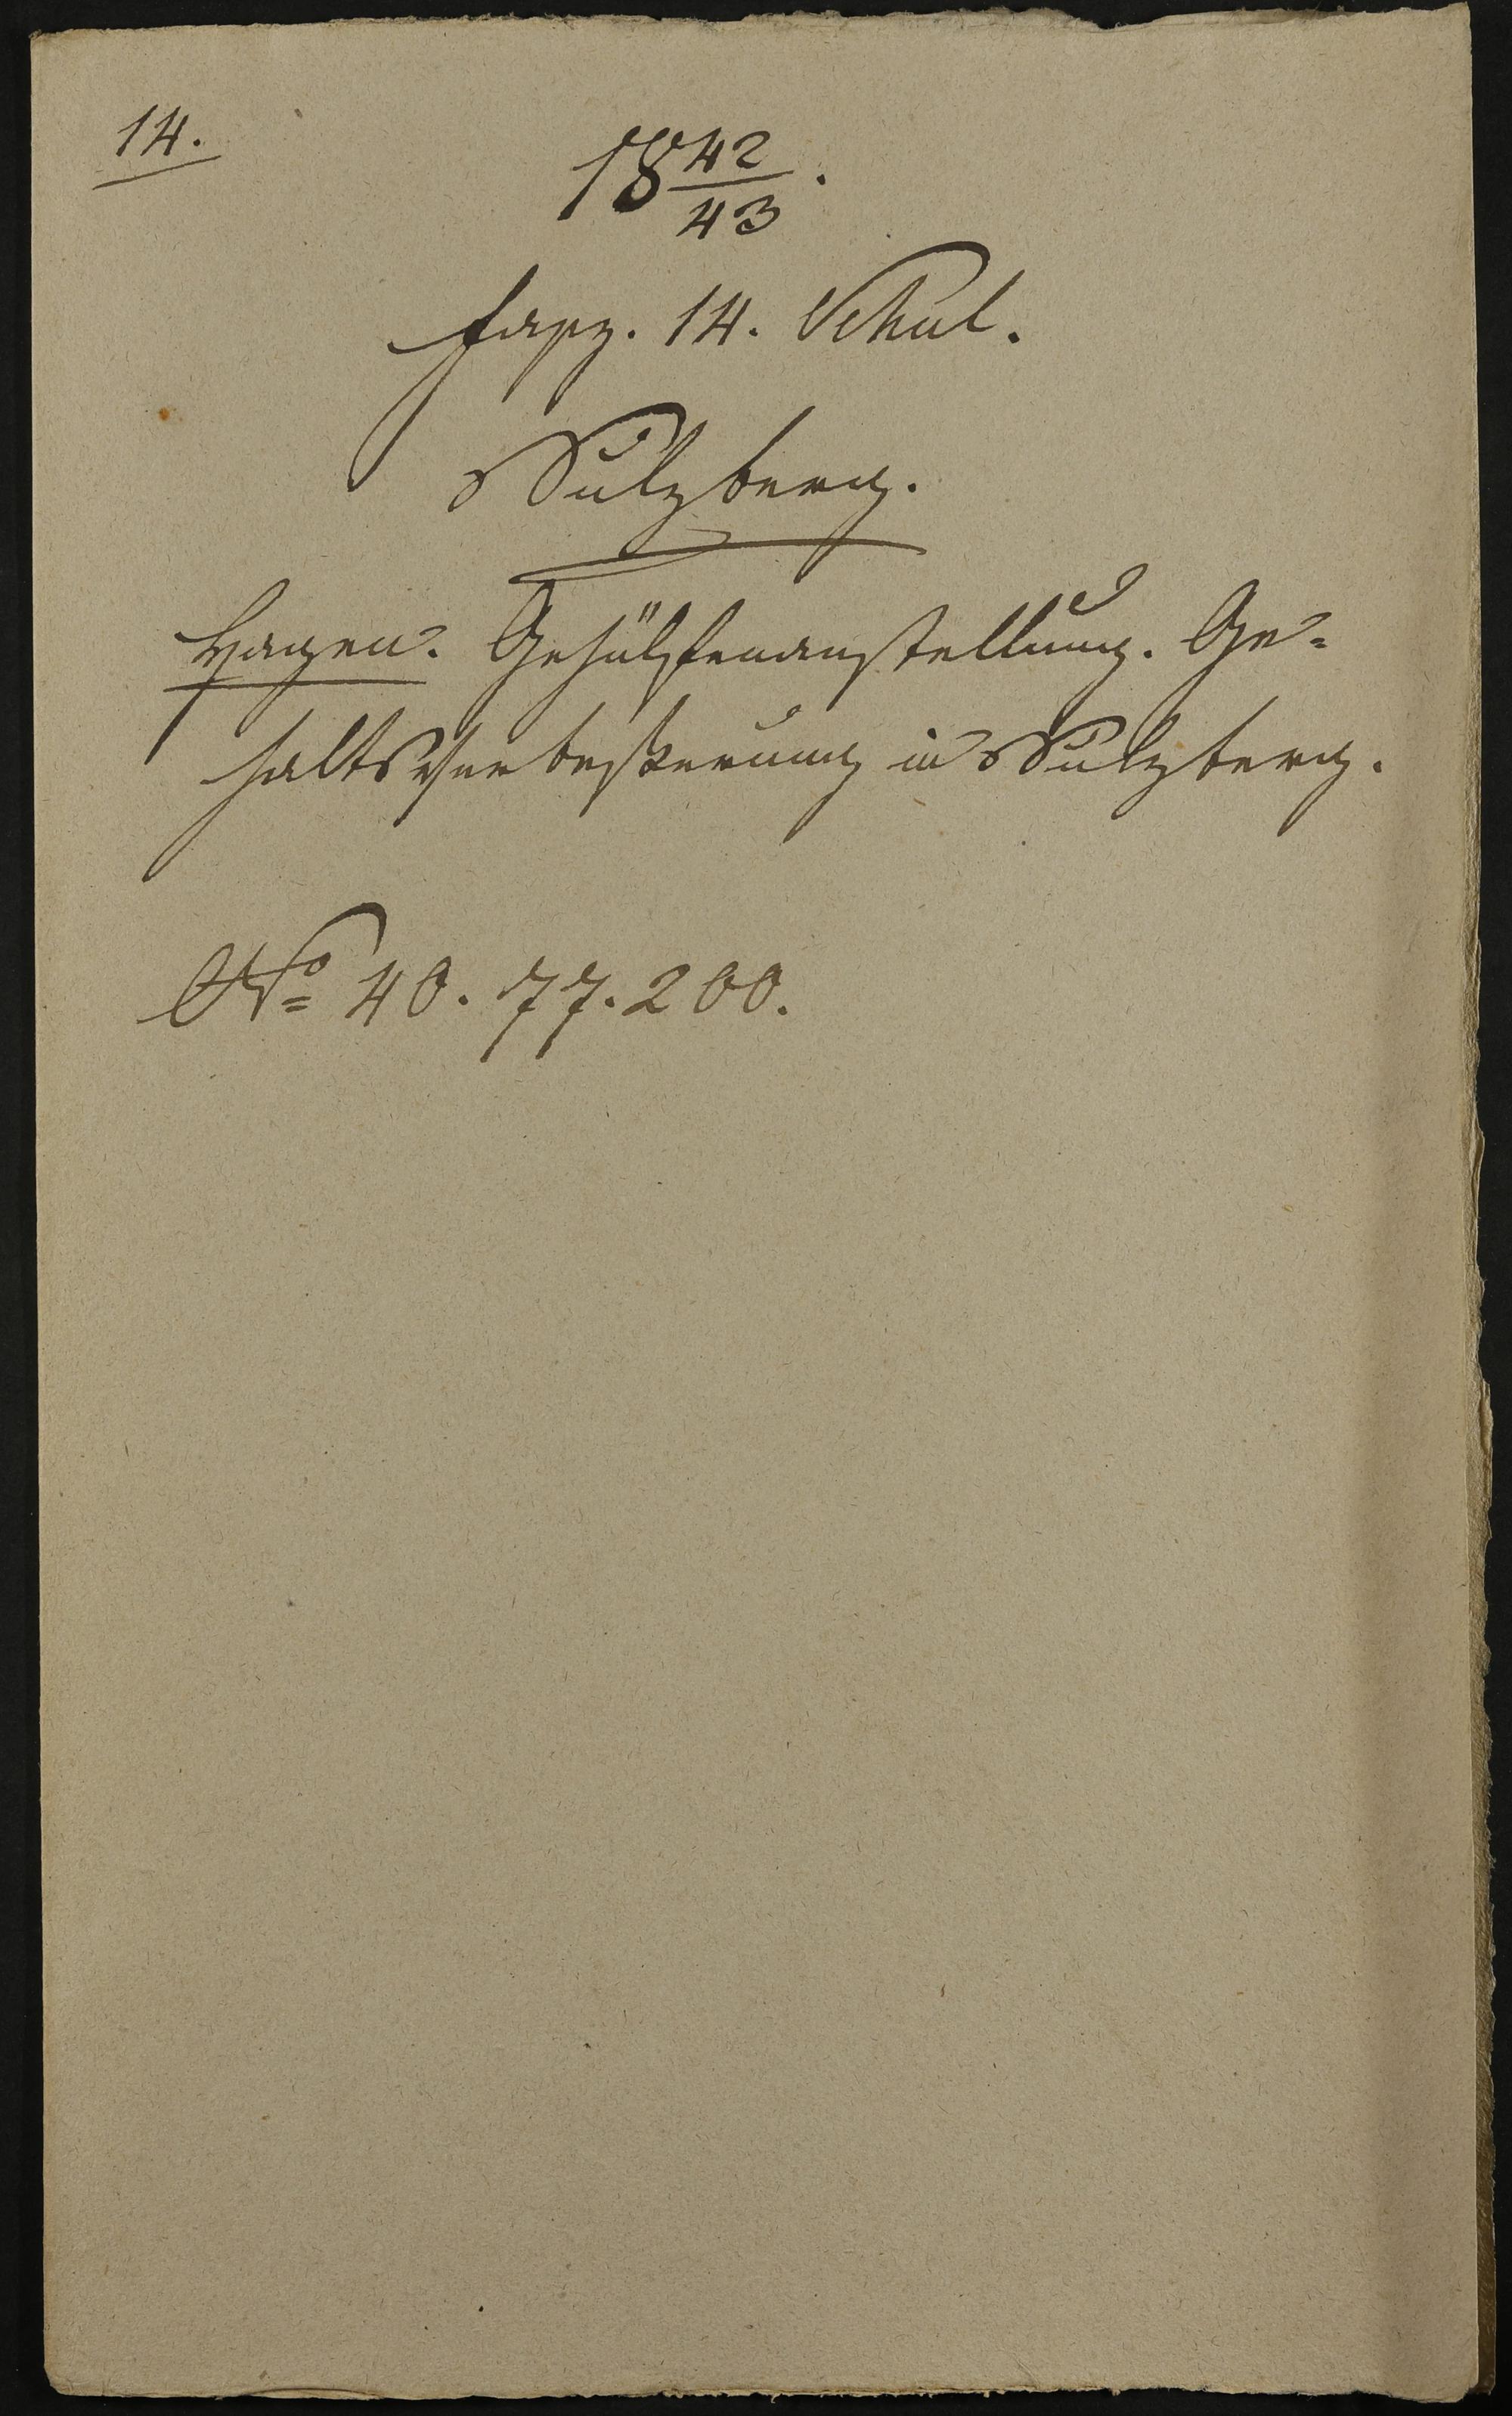 14.
18 42/43.
Fasz. 14. Schul.
Sulzberg.
Hagen. Gehülfenanstellung. Ge=
haltsverbeßerung in Sulzberg.
No 40. 77. 200.